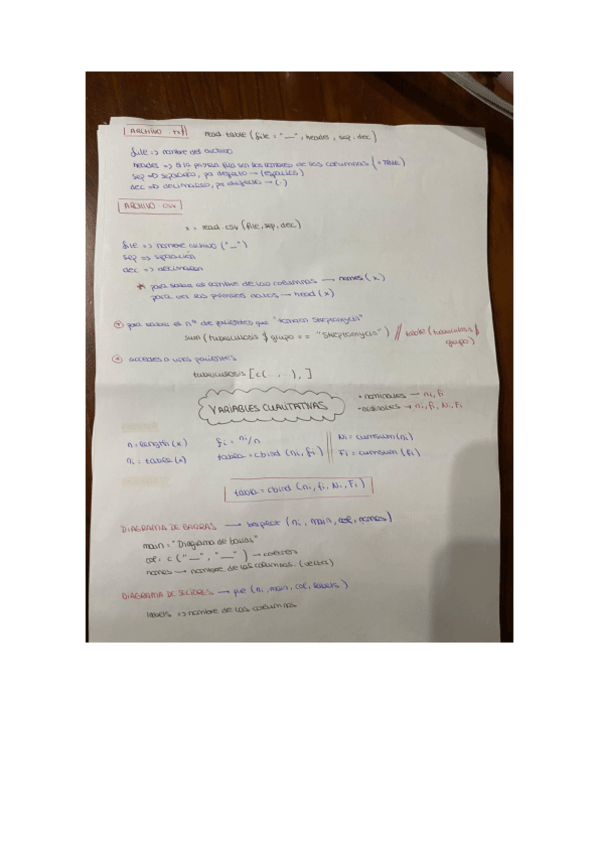 ARCHIVO txt
read.table (file = "__", header, sep, dec)
file => nombre del archivo
header => si la primera fila son los nombres de las columnas (= TRUE)
sep => separador, por defecto → (espacios)
dec => decimales, por defecto → (.)
ARCHIVO csv
x = read.csv (file, sep, dec)
file => nombre archivo ("__")
sep => separación
dec => decimales
* para saber el nombre de las columnas → names (x)
para ver los primeros datos → head (x)
para saber el nº de pacientes que "toman Streptomycin"
sum (tuberculosis $ grupo == "Streptomycin") // table (tuberculosis $
grupo)
acceder a varios pacientes
tuberculosis [c( , , ), ]
VARIABLES CUALITATIVAS
• nominales → ni, fi
• ordinales → ni, fi, Ni, Fi
n = length (x) fi = ni/n Ni = cumsum (ni)
ni = table (x) tabla = cbind (ni, fi) Fi = cumsum (fi)
tabla = cbind (ni, fi, Ni, Fi)
DIAGRAMA DE BARRAS → barplot (ni, main, col, names)
main: "Diagrama de barras"
col: c ("__", "__") → colores
names → nombre de las columnas. (vector)
DIAGRAMA DE SECTORES → pie (ni, main, col, labels)
labels => nombre de las columnas